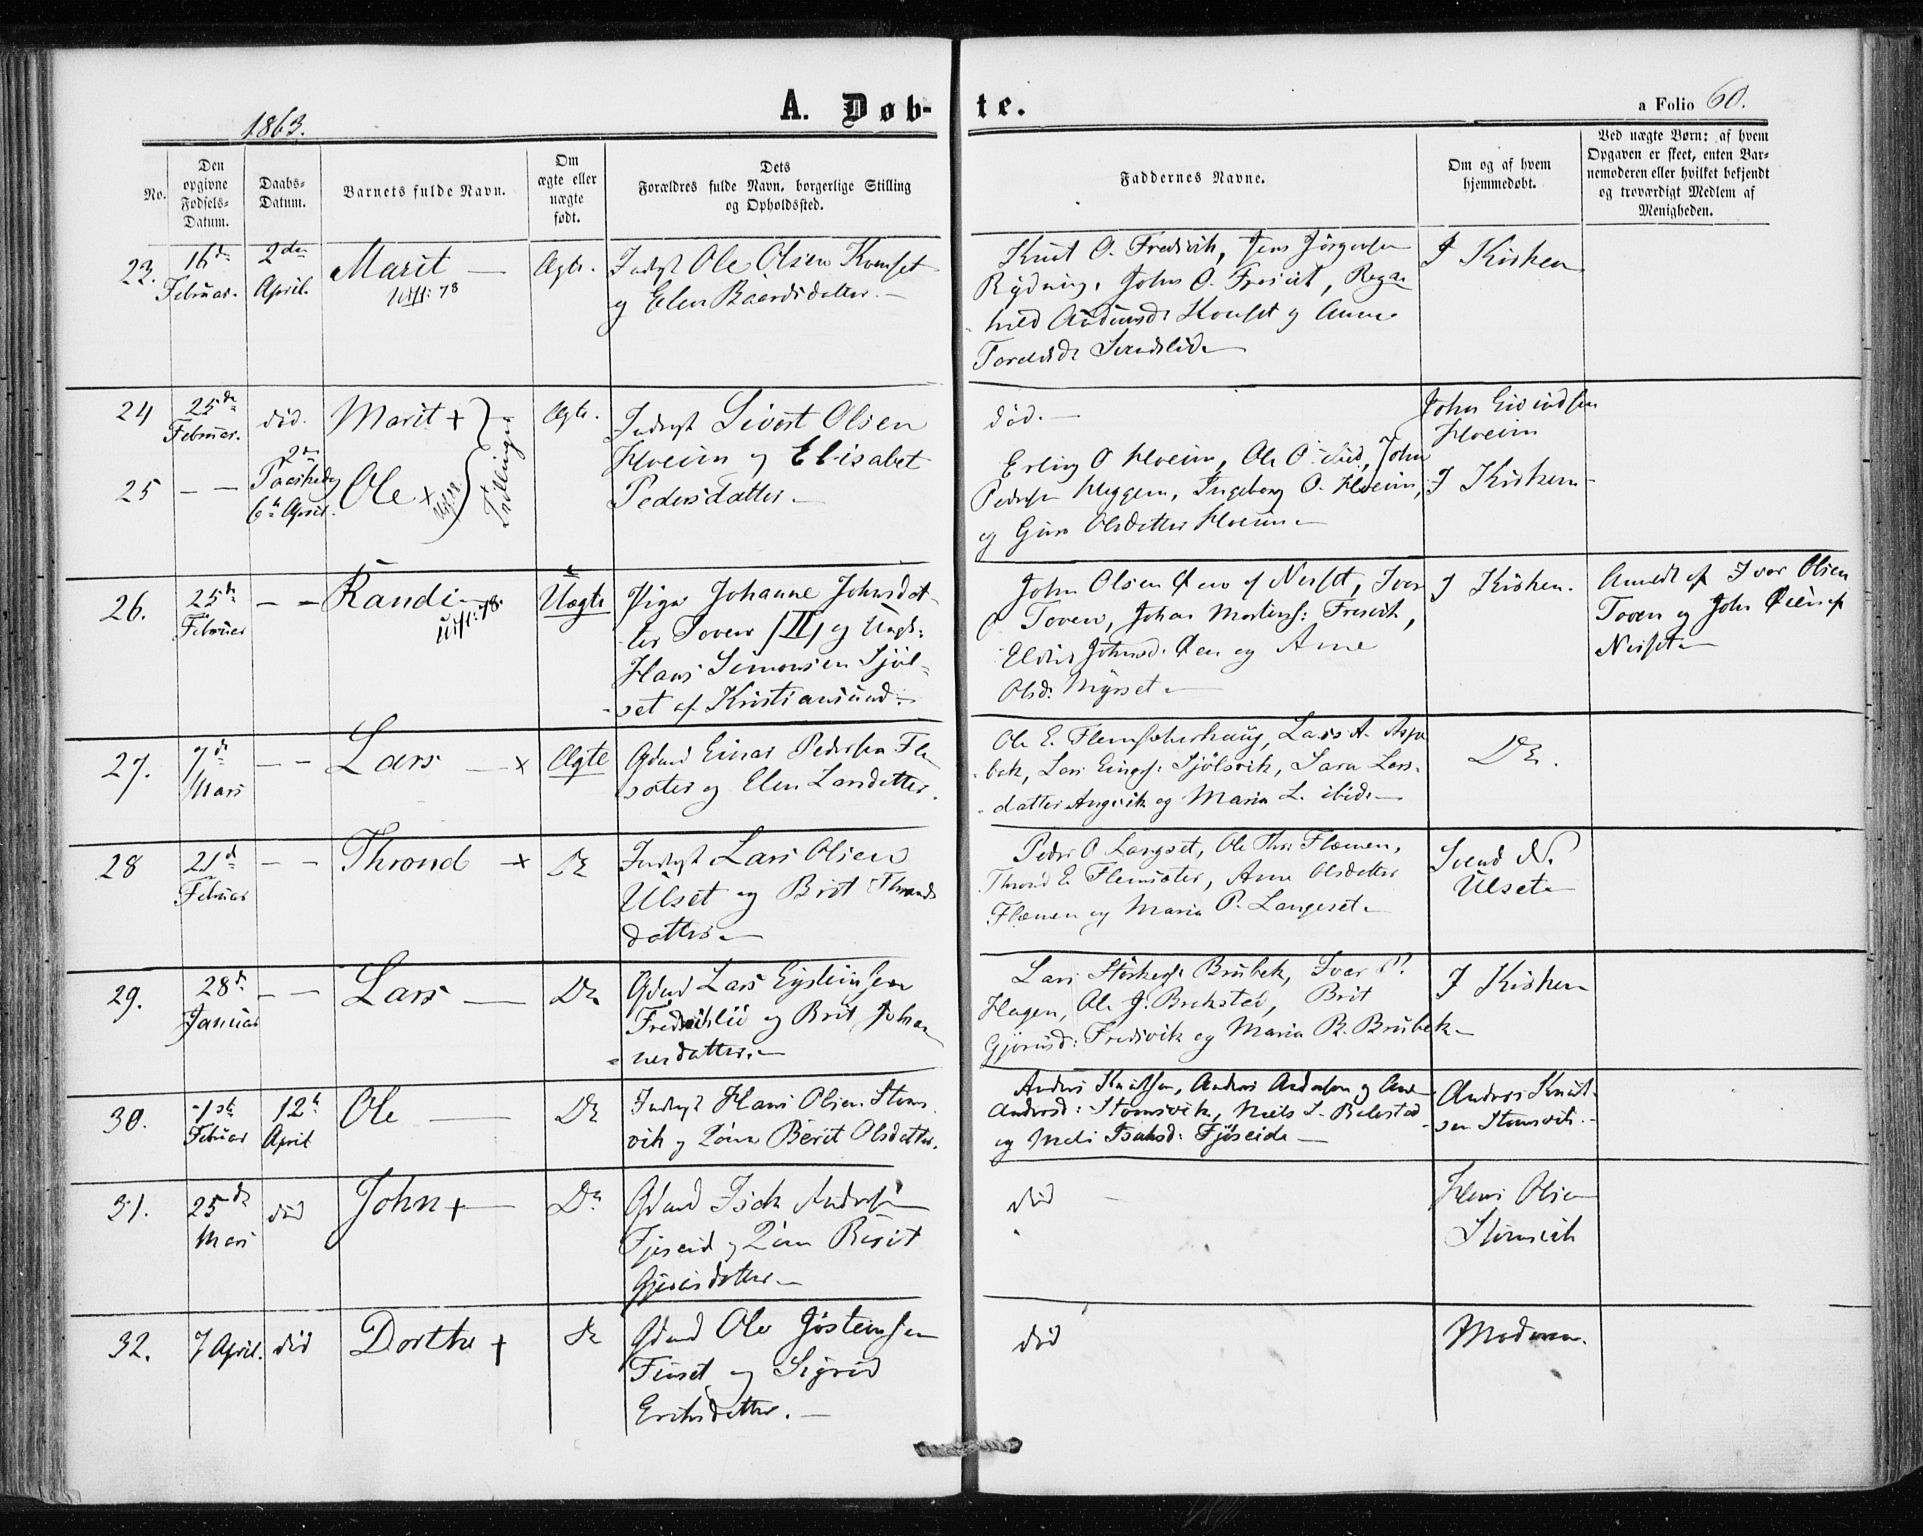 1863.
A. Døb-
te.
a Folio 60.
No.
Den
opgivne
Fødsels-
Datum.
Daabs-
Datum.
Barnets fulde Navn.
Om
ægte eller
uægte
født.
Dets
Forældres fulde Navn, borgerlige Stilling
og Opholdssted.
Faddernes Navne.
Om og af hvem
hjemmedøbt.
Ved uægte Børn: af hvem
Opgaven er skeet, enten Bar-
nemoderen eller hvilket bekjendt
og troværdigt Medlem af
Menigheden.
23.
16de
Februar.
2den
April.
Marit —
78
Ægte.
Inderst Ole Olsen
og Elen Baardsdatter. —
Knut O. Fredsvik, Jens Jørgensen
Rydning, John O.
og Anne
I Kirken
24
25de
Februar.
død.
Marit +
Tvillinger
Ægte.
Inderst Sivert Olsen
Hoeim og Elisabet
Pedersdatter —
død. —
John Eivindsen
Hoeim
25
— —
2den
Paaskedag
6te April.
Ole ×
Erling O Hoeim, Ole O. John
Pedersen Heggem, Ingeborg O. Hoeim,
og Guro Olsdatter Hoeim —
I Kirken —
26.
25de
Februar
— —
Randi —
78.
Uægte
Pige Johanne Johnsdat-
ter Toven [II] og
Hans Simonsen Sjøl-
set af Kristiansund. —
John Olsen Øien af Neisset, Ivar
Toven, Johan
Johnsd. Øien og Ane
Olsd. Myrset —
I Kirken.
Anmeldt af Ivar Olsen
Toven og John Øien af
Neisset —
27.
7de
Mars
— —
Lars — ×
Ægte
Gdmd Einar Pedersen Fle
sæter og Elen Larsdatter.
Ole E. Flemsæterhaug, Lars A. Aspe
bak, Lars Einars: Sjølsvik, Sara Lars-
datter Angvik og Maria L. ibid. —
Do.
28
21de
Februar
— —
Thrond — ×
Do
Inderst Lars Olsen
Ulset og Brit Thronds
datter —
Peder O Langset, Ole Flemmen,
Thrond E. Flemsæter, Ane Olsdatter
Flemmen og Maria P. Langeset —
Svend N.
Ulset —
29.
28de
Januar
— —
Lars —
Do
Gdmd Lars Eysteinsen
og Brit Johan
nesdatter. —
Lars Brubek, Ivar P.
Hagen, Ole J. Brekstad, Brit
Fredsvik og Maria R. Brubek —
I Kirken
30.
1ste
Februar
12te
April
Ole —
Do
Inderst Hans Olsen Stoms
vik og Kone Berit Olsdatter.
Anders Knutsen, Anders Andersen og Ane
Andersd: Stomsvik, Niels L.
og Isaksd: Fjøseide —
Anders Knut-
sen Stomsvik. —
31.
25de
Mars
død
John + —
Do
Gdmd Isak Andersen
Fjøseid og Kone Berit
død
Hans Olsen
Stomsvik
32.
7 April.
død
Dorthe +
Do
Gdmd Ole Jøstensen
Finset og Sigrid
Eriksdatter. —
død
Moderen.